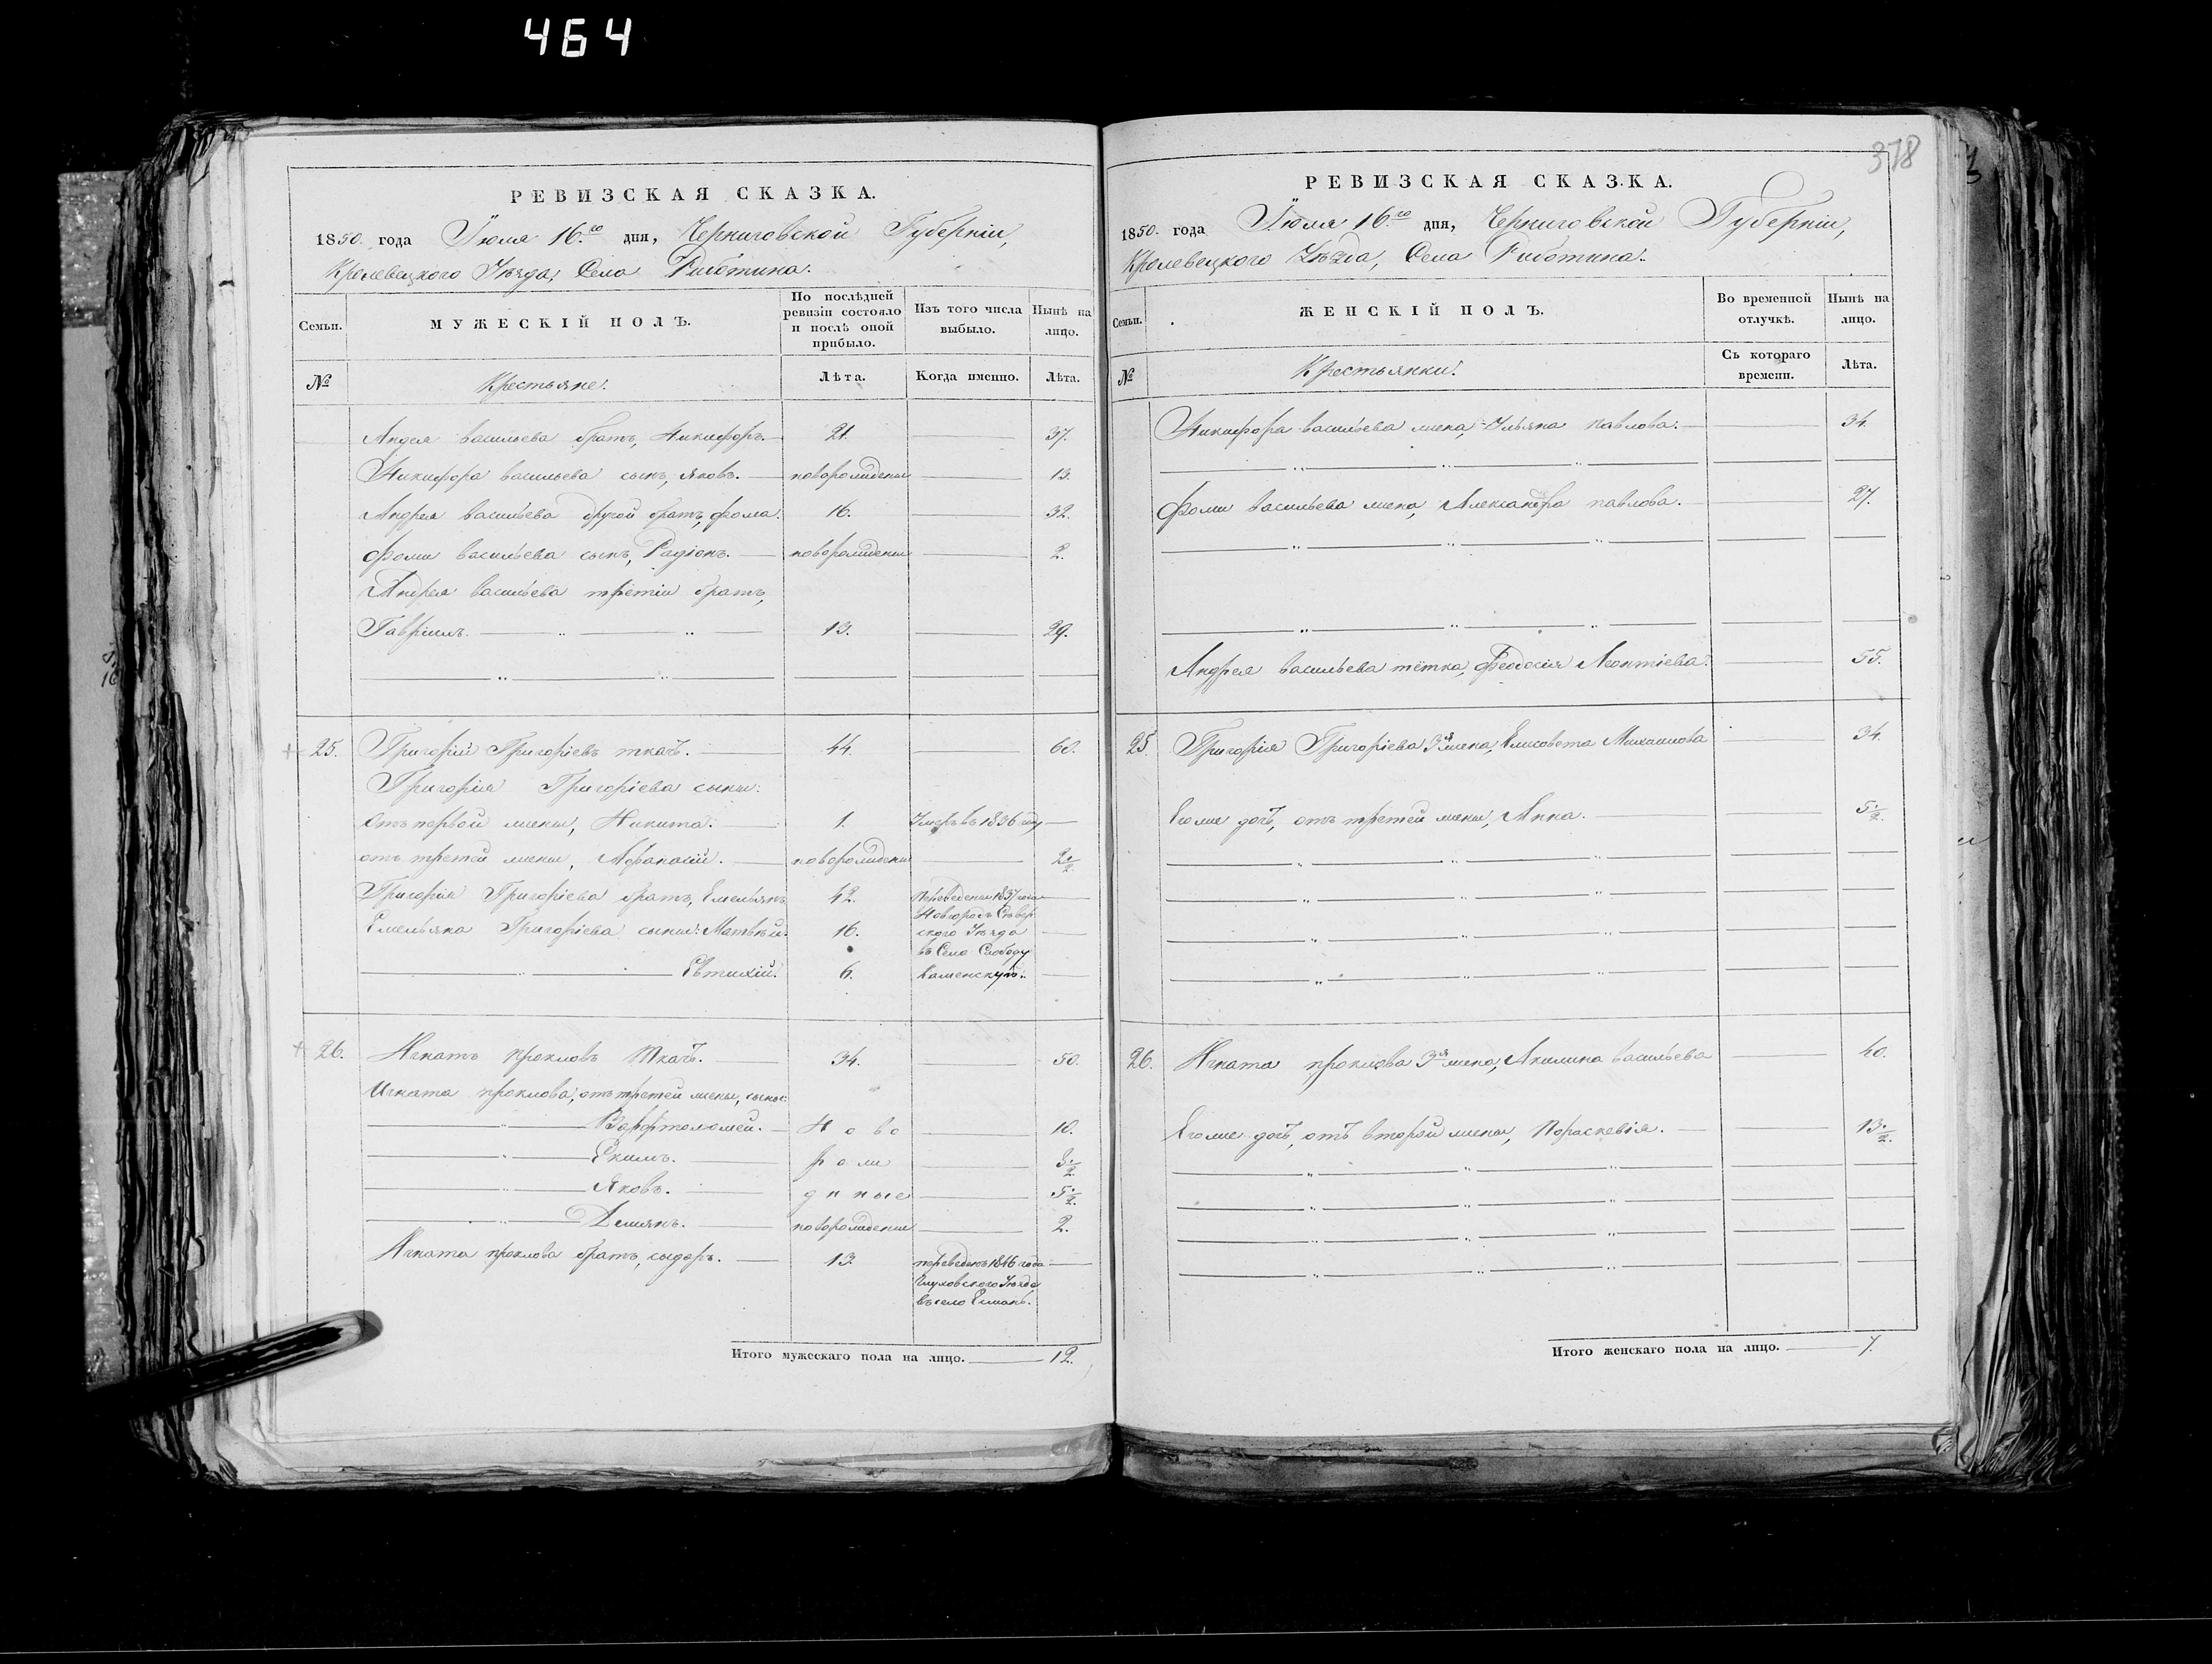 464
РЕВИЗСКАЯ СКАЗКА.
1850. года Іюля 16.го дня, Черниговской Губерніи,
Кролевецкого Уѣзда, Села Риботина.
Семьи.
МУЖЕСКІЙ ПОЛЪ.
По послѣдней ревизіи состояло и послѣ оной прибыло.
Изъ того числа выбыло.
Нынѣ на лицо.
№
Крестьяне.
Лѣта.
Когда именно.
Лѣта.
Андрея васильева братъ, Никифоръ. 21. 37.
Никифора васильева сынъ, яковъ. новорожденн 13.
Андрея васильева другой братъ, фома. 16. 32.
Фомы васильева сынъ, Радіонъ. новорожденн 2.
Андрея васильева третіи братъ,
Гавріилъ. 13. 29.
25. Григорій Григоріевъ ткачъ. 44. 60.
Григорія Григоріева сыны:
Отъ первой жены, Никита. 1. Умеръ въ 1836 году
отъ третей жены, Афанасій. новорожденн 2 1/2
Григорія Григоріева братъ, Емельянъ 42. Переведены 1837 года
Новгородъ Сѣвер
Емельяна Григоріева сыны: Матвѣй. 16. ского Уѣзда
въ Село Слободу
Евтихій. 6. каменскую.
26. Игнатъ прокловъ Ткачъ. 34. 50.
Игната проклова, отъ третей жены, сыны:
Варфтоломей. Ново 10.
Екимъ. рож 8 1/2
Яковъ. денные 5 1/2.
Демянъ. новорожденн 2.
Игната проклова братъ, сыдоръ. 13. переведенъ 1846 года
Глуховского Уѣзда
въ село Есмань.
Итого мужескаго пола на лицо. 12.
378
РЕВИЗСКАЯ СКАЗКА.
1850. года Іюля 16.го дня, Черниговской Губерніи,
Кролевецкого Уѣзда, Села Риботина.
Семьи.
ЖЕНСКІЙ ПОЛЪ.
Во временной отлучкѣ.
Нынѣ на лицо.
№
Крестьянки.
Съ котораго времени.
Лѣта.
Никифора васильева жена, Ульяна павлова. 34.
Фомы васильева жена, Александра павлова. 27.
Андрея васильева тётка, Феодосія Леонтіева. 55.
25 Григорія Григоріева 3я жена, Елисовета Михаилова 34.
Егоже дочь, отъ третей жены, Анна. 5 1/2.
26. Игната проклова 3я жена, Акилина васильева 40.
Егоже дочь, отъ второй жены, Пораскевія. 13 1/2.
Итого женскаго пола на лицо. 7.